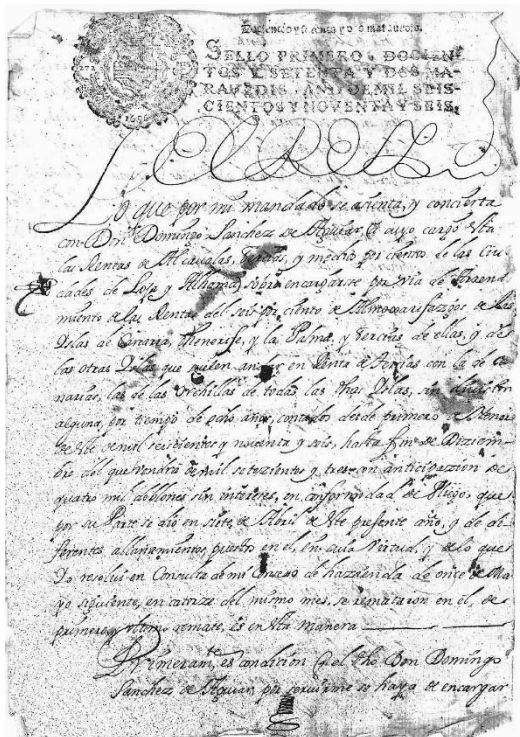 Docientos y setenta y dos maravedis.
SELLO PRIMERO, DOCIEN-
TOS Y SETENTA Y DOS MA-
RAVEDIS, AÑO DE MIL SEIS-
CIENTOS Y NOVENTA Y SEIS.
EL REY
Lo que por mi mandado se asienta, y concierta
con Dn. Domingo Sanchez de Aguiar, a cuyo cargo esta
las Rentas de Alcavalas, tercias, y medio por ciento de las Ciu-
dades de Loja y Alhama, sobre encargarse por via de Arrenda
miento de las Rentas del seis por ciento de Almoxarifazgos de las
Yslas de Canaria, Thenerife, y la Palma, y tercias de ellas, y de
las otras Yslas que suelen andar en Renta de tercias con la de Ca-
narias, las de las Orchillas de todas las thas Yslas, sin
alguna, por tiempo de ocho años, contados desde primero de Henero
de este de mil seiscientos y noventa y seis, hasta fin de Diziem-
bre del que vendrá de mil setezientos y tres con anticipazion de
quatro mil doblones sin intereses, en conformidad de Pliego, que
por su Parte se dio en siete de Abril de este presente año, y de di-
ferentes allanamientos puestos en el, en cuia virtud, y de lo que
Yo resolui en Consulta de mi Consejo de hazienda de once de Ma-
yo siguiente, en catorze del mismo mes, se remataron en el, de
primero y ultimo remate, es en esta manera
Primeramte. es condicion q el dho Don Domingo
Sanchez de Aguiar por seruirme se haya de encargar